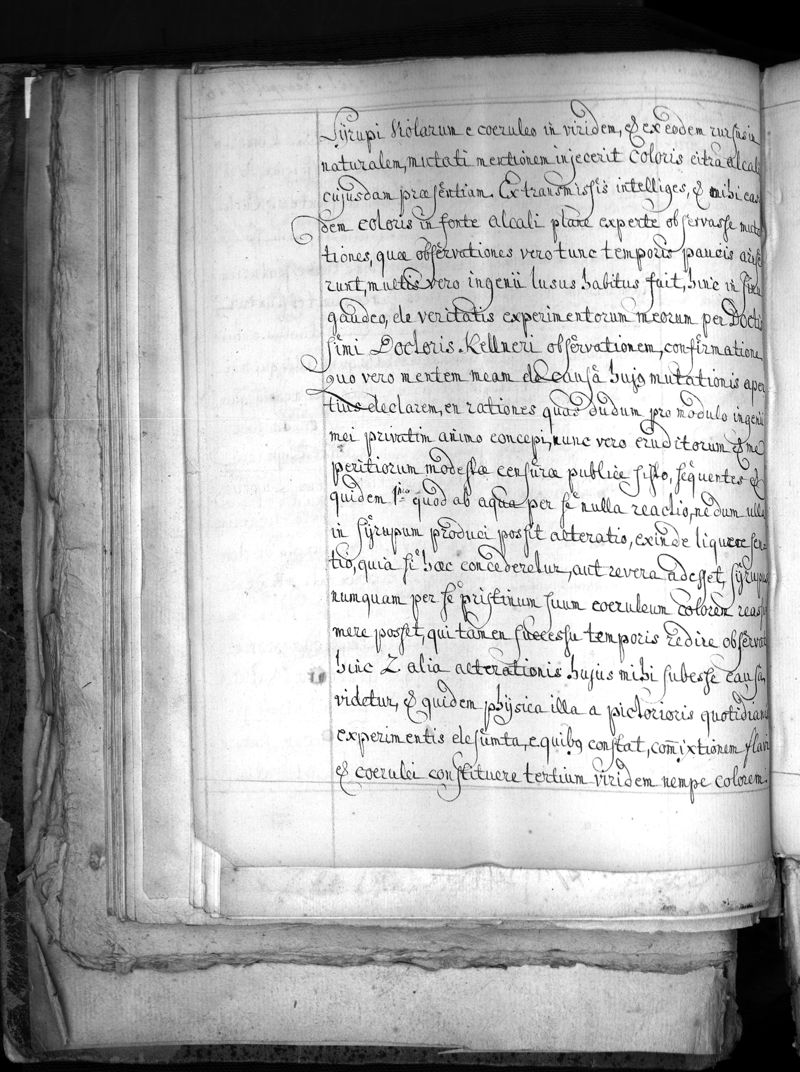 Syrupi Violarum e coeruleo in viridem, & ex eodem rursus in
naturalem, mutati mentionem injecerit coloris citra alcali
cujusdam præsentiam. Ex transmissis intelliges, & mihi eas
dem coloris in fonte alcali plane experte observasse muta
tiones, quæ observationes vero tunc temporis paucis arise
runt, multis vero ingenii lusus habitus fuit, hinc in sinu
gaudeo, de veritatis experimentorum meorum per Doctis
simi Doctoris Kellneri observationem, confirmatione,
quo vero mentem meam de causâ hujs mutationis aper
tius declarem, en rationes quas dudum pro modulo ingenii
mei privatim animo concepi, nunc vero eruditorum & me
peritiorum modestæ censuræ publice sisto, sequentes &
quidem 1mo quod ab aqua per se nulla reactio, nedum ulla
in syrupum produci possit alteratio, exinde liquere sen-
tio, quia si hæc concederetur, aut revera adesset, syrupus
numquam per se pristinum suum coeruleum colorem reassu
mere posset, qui tamen successu temporis redire observatur
hinc 2. alia alterationis hujus mihi subesse causa,
videtur, & quidem physica illa a pictorioris quotidianis
experimentis desumta, e quibg constat, com̃ixtionem flavi
& coerulei constituere tertium viridem nempe colorem.